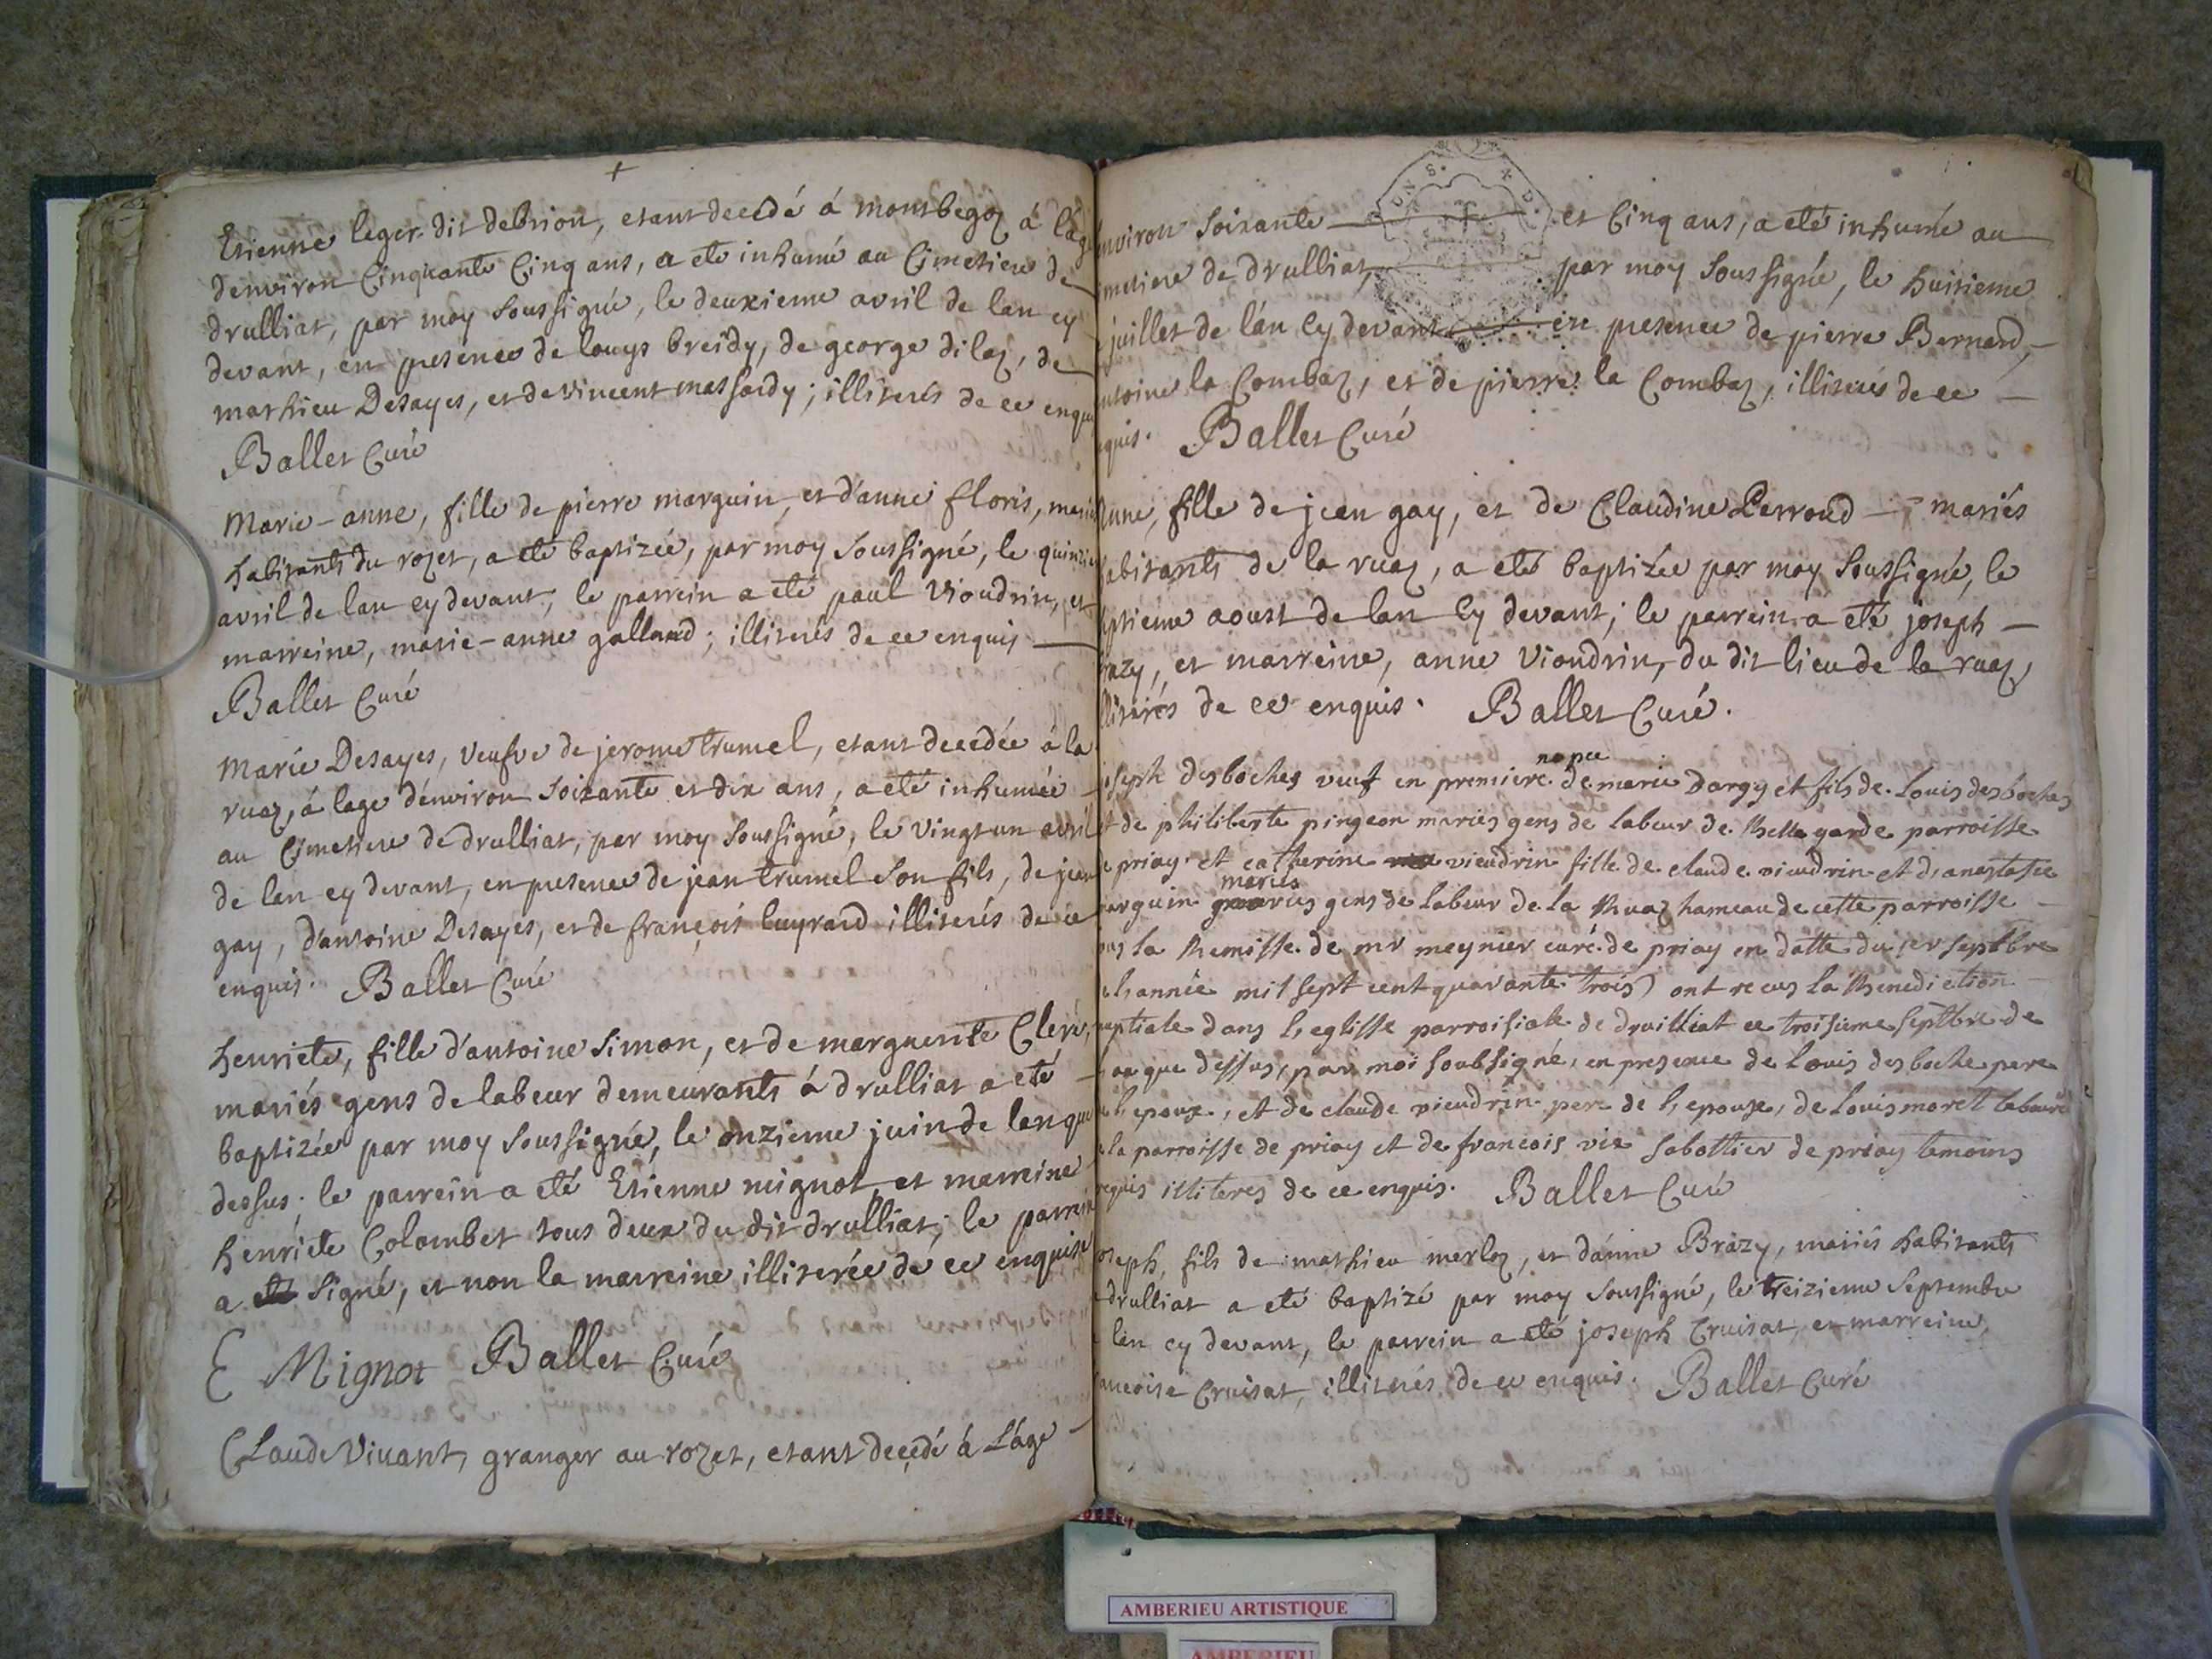 Etienne leger dit debrion, etant decedé á montbegoz á lage
denviron Cinquante Cinq ans, a eté inhumé au Cimetiere de
drulliat, par moy Soussigné, le deuxieme avril de lan cy
devant, en presence de louys breidy, de george dilaz, de
mathieu Desayes, et de vincent massardy; illiterés de ce enquis
Ballet Curé
Marie-anne, fille de pierre marguin, et d'anne floris, mariés
habitants du rozet, a eté baptizée, par moy Soussigné, le quinzie
avril de lan cy devant, le parrein a eté paul Vioudrin, et
marreine, marie-anne galland; illiterés de ce enquis
Ballet Curé
Marie Desayes, Veufve de jerome trumel, etant decedée á la
ruaz, á lage d'environ Soixante et dix ans, a eté inhumée
au Cimetiere de drulliat, par moy Soussigné, le Vingt un avril
de lan cy devant, en presence de jean trumel Son fils, de jean
gay, d'antoine Desayes, et de françois luyrard illiterés de ce
enquis. Ballet Curé
henriete, fille d'antoine Simon, et de marguerite Clere,
mariés gens de labeur demeurants á drulliat a eté
baptizée par moy Soussigné, le onzieme juin de lan que
dessus; le parrein a eté Etienne mignot, et marreine
henriete Colombet tous deux du dit drulliat; le parrein
a Signé, et non la marreine illiterée de ce enquise
E Mignot Ballet Curé
Claude Vivant, granger au rozet, etant decedé á l'áge
nviron Soixante et Cinq ans, a eté inhumé au
metiere de drulliat, par moy Soussigné, le huitieme
juillet de l'án Cy devant en presence de pierre Bernard,
ntoine la Combaz, et de pierre la Combaz, illiterés de ce
quis. Ballet Curé
Anne, fille de jean gay, et de Claudine Perroud mariés
abitants de la ruaz, a eté baptizée par moy Soussigné, le
ptieme aoust de lan Cy devant; le parrein a eté joseph
razy, et marreine, anne Vioudrin, du dit lieu de la ruaz,
lliterés de ce enquis. Ballet Curé.
oseph desboches veuf en premiere nopce de marie dargy et fils de Louis desboches
t de philiberte pingeon mariés gens de labeur de Bellegarde parroisse
e priay et catherine vieudrin fille de claude vieudrin et d'anastasie
arguin mariés gens de labeur de la Ruaz hameau de cette parroisse
ous la Remisse de mr meynier curé de priay en datte du 1er septbre
e l'année mil sept cent quarante trois) ont recus la Benediction
nuptiale dans l'eglisse parroisiale de druilliat ce troisieme septbre de
l'an que dessus, par moi soubsigné, en presence de Louis desboche pere
e l'epoux, et de claude vieudrin pere de l'epouse, de Louis morel laboure
e la parroisse de priay et de francois vie sabottier de priay temoins
requis illiteres de ce enquis. Ballet Curé
oseph, fils de mathieu merloz, et d'anne Brazy, mariés habitants
drulliat a eté baptizé par moy Soussigné, le treizieme Septembre
lan cy devant, le parrein a eté joseph Cruisat, et marreine,
ancoise Cruisat, illiterés de ce enquis. Ballet Curé
AMBERIEU ARTISTIQUE
AMBERIEU